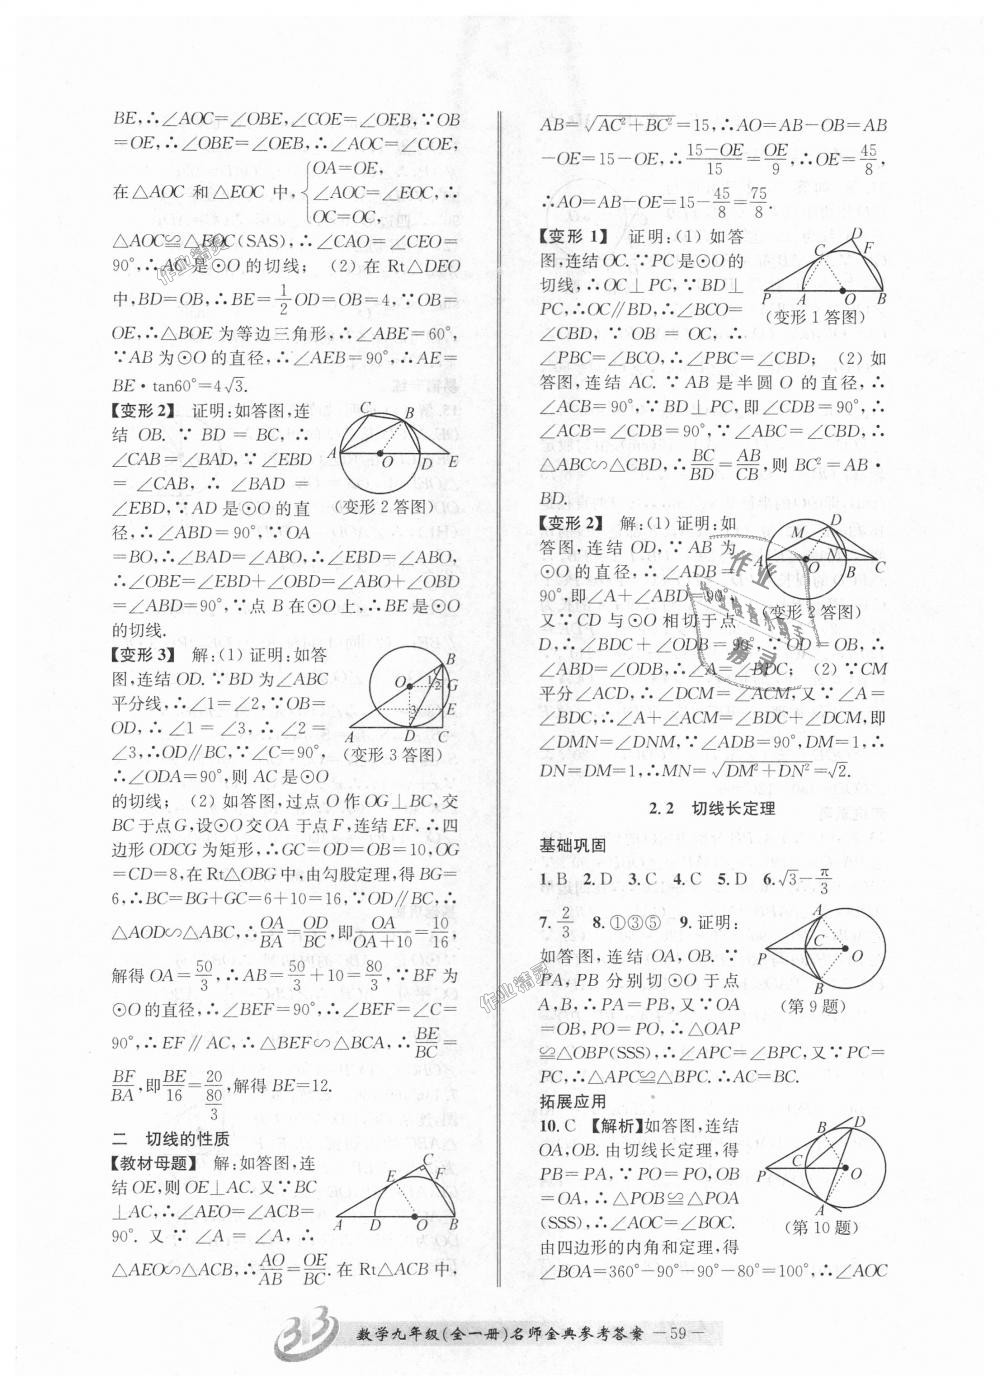 BE,∴∠AOC=∠OBE,∠COE=∠OEB,∵OB
=OE,∴∠OBE=∠OEB,∴∠AOC=∠COE,
在△AOC 和△EOC 中,{OA=OE, ∠AOC=∠EOC, OC=OC, ∴
△AOC≌△EOC(SAS),∴∠CAO=∠CEO=
90°,∴AC 是⊙O 的切线; (2) 在 Rt△DEO
中,BD=OB,∴BE=1/2 OD=OB=4,∵OB=
OE,∴△BOE 为等边三角形,∴∠ABE=60°,
∵AB 为⊙O 的直径,∴∠AEB=90°,∴AE=
BE·tan60°=4√3.
【变形 2】 证明:如答图,连
结 OB. ∵ BD = BC, ∴
∠CAB=∠BAD,∵∠EBD
= ∠CAB, ∴ ∠BAD =
∠EBD,∵AD 是⊙O 的直
径,∴∠ABD=90°,∵OA
=BO,∴∠BAD=∠ABO,∴∠EBD=∠ABO,
∴∠OBE=∠EBD+∠OBD=∠ABO+∠OBD
=∠ABD=90°,∵点 B 在⊙O 上,∴BE 是⊙O
的切线.
(变形 2 答图)
【变形 3】 解:(1) 证明:如答
图,连结 OD. ∵BD 为∠ABC
平分线,∴∠1=∠2,∵OB=
OD,∴∠1 = ∠3, ∴∠2 =
∠3,∴OD∥BC,∵∠C=90°,
∴∠ODA=90°,则 AC 是⊙O
的切线; (2) 如答图,过点 O 作 OG⊥BC,交
BC 于点 G,设⊙O 交 OA 于点 F,连结 EF. ∴四
边形 ODCG 为矩形,∴GC=OD=OB=10,OG
=CD=8,在 Rt△OBG 中,由勾股定理,得 BG=
6,∴BC=BG+GC=6+10=16,∵OD∥BC,∴
△AOD∽△ABC,∴OA/BA=OD/BC,即OA/(OA+10)=10/16,
解得 OA=50/3,∴AB=50/3+10=80/3,∵BF 为
⊙O 的直径,∴∠BEF=90°,∴∠BEF=∠C=
90°,∴EF∥AC,∴△BEF∽△BCA,∴BE/BC=
BF/BA,即BE/16=20/(80/3),解得 BE=12.
(变形 3 答图)
二 切线的性质
【教材母题】 解:如答图,连
结 OE,则 OE⊥AC. 又∵BC
⊥AC,∴∠AEO=∠ACB=
90°. 又 ∵ ∠A = ∠A, ∴
△AEO∽△ACB,∴AO/AB=OE/BC. 在 Rt△ACB 中,
AB=√(AC²+BC²)=15,∴AO=AB-OB=AB
-OE=15-OE,∴(15-OE)/15=OE/9,∴OE=45/8,
∴AO=AB-OE=15-45/8=75/8.
【变形 1】 证明:(1) 如答
图,连结 OC. ∵PC 是⊙O 的
切线,∴OC⊥PC,∵BD⊥
PC,∴OC∥BD,∴∠BCO=
∠CBD, ∵ OB = OC, ∴
∠PBC=∠BCO,∴∠PBC=∠CBD; (2) 如
答图,连结 AC. ∵AB 是半圆 O 的直径,∴
∠ACB=90°,∵BD⊥PC,即∠CDB=90°,∴
∠ACB=∠CDB=90°,∵∠ABC=∠CBD,∴
△ABC∽△CBD,∴BC/BD=AB/CB,则 BC²=AB·
BD.
(变形 1 答图)
【变形 2】 解:(1) 证明:如
答图,连结 OD,∵AB 为
⊙O 的直径,∴∠ADB=
90°,即∠A+∠ABD=90°,
又∵CD 与⊙O 相切于点
D,∴∠BDC+∠ODB=90°,∵OD=OB,∴
∠ABD=∠ODB,∴∠A=∠BDC; (2)∵CM
平分∠ACD,∴∠DCM=∠ACM,又∵∠A=
∠BDC,∴∠A+∠ACM=∠BDC+∠DCM,即
∠DMN=∠DNM,∵∠ADB=90°,DM=1,∴
DN=DM=1,∴MN=√(DM²+DN²)=√2.
(变形 2 答图)
2.2 切线长定理
基础巩固
1. B 2. D 3. C 4. C 5. D 6. √3-π/3
7. 2/3 8. ①③⑤ 9. 证明:
如答图,连结 OA,OB. ∵
PA,PB 分别切⊙O 于点
A,B,∴PA=PB,又∵OA
=OB,PO=PO,∴△OAP
≌△OBP(SSS),∴∠APC=∠BPC,又∵PC=
PC,∴△APC≌△BPC. ∴AC=BC.
(第 9 题)
拓展应用
10. C 【解析】如答图,连结
OA,OB. 由切线长定理,得
PB=PA,∵PO=PO,OB
=OA,∴△POB≌△POA
(SSS),∴∠AOC=∠BOC.
由四边形的内角和定理,得
∠BOA=360°-90°-90°-80°=100°,∴∠AOC
(第 10 题)
数学九年级(全一册)名师金典参考答案 —59—